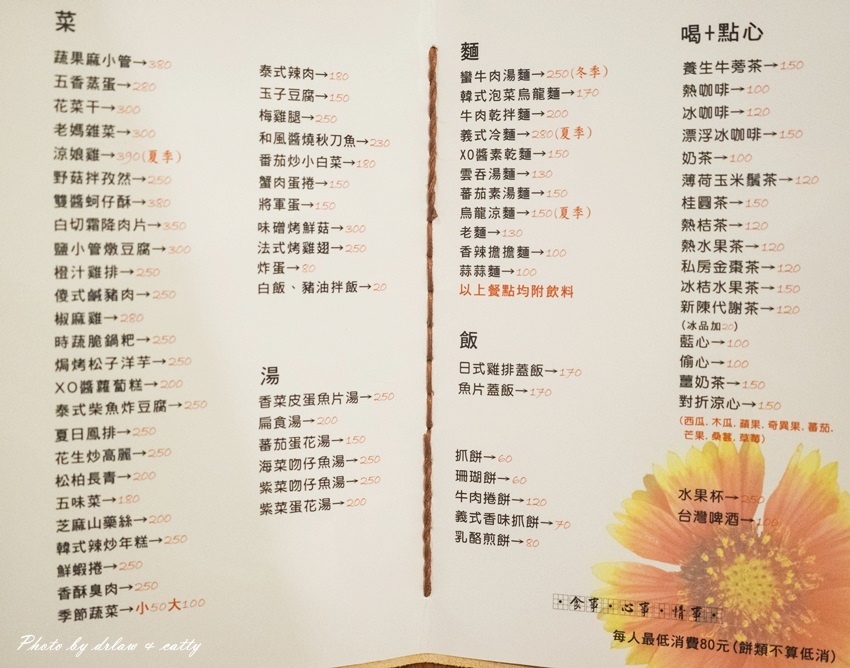 菜
蔬果麻小管→380
五香蒸蛋→280
花菜干→300
老媽雜菜→300
涼娘雞→390(夏季)
野菇拌孜然→250
雙醬蚵仔酥→380
白切霜降肉片→350
鹽小管燉豆腐→300
橙汁雞排→250
傻式鹹豬肉→250
椒麻雞→280
時蔬脆鍋粑→250
焗烤松子洋芋→250
XO醬蘿蔔糕→200
泰式柴魚炸豆腐→250
夏日鳳排→250
花生炒高麗→250
松柏長青→200
五味菜→180
芝麻山藥絲→200
韓式辣炒年糕→250
鮮蝦捲→250
香酥臭肉→250
季節蔬菜→小50大100
泰式辣肉→180
玉子豆腐→150
梅雞腿→250
和風醬燒秋刀魚→230
番茄炒小白菜→180
蟹肉蛋捲→150
將軍蛋→150
味磳烤鮮菇→300
法式烤雞翅→250
炸蛋→80
白飯、豬油拌飯→20
湯
香菜皮蛋魚片湯→250
扁食湯→200
蕃茄蛋花湯→150
海菜吻仔魚湯→250
紫菜吻仔魚湯→250
紫菜蛋花湯→200
麵
蠻牛肉湯麵→250(冬季)
韓式泡菜烏龍麵→170
牛肉乾拌麵→200
義式冷麵→280(夏季)
XO醬素乾麵→150
雲吞湯麵→130
蕃茄素湯麵→150
烏龍涼麵→150(夏季)
老麵→130
香辣擔擔麵→100
蒜蒜麵→100
以上餐點均附飲料
飯
日式雞排蓋飯→170
魚片蓋飯→170
抓餅→60
珊瑚餅→60
牛肉捲餅→120
義式香味抓餅→70
乳酪煎餅→80
喝+點心
養生牛蒡茶→150
熱咖啡→100
冰咖啡→120
漂浮冰咖啡→150
奶茶→100
薄荷玉米鬚茶→120
桂圓茶→150
熱桔茶→120
熱水果茶→120
私房金棗茶→120
冰桔水果茶→150
新陳代謝茶→120
(冰品加20)
藍心→100
偷心→100
薑奶茶→150
對折涼心→150
(西瓜.木瓜.蘋果.奇異果.蕃茄.
芒果.桑葚.草莓)
水果杯→250
台灣啤酒→100
·食事·心事·情事·
每人最低消費80元(餅類不算低消)
Photo by drlaw & catty